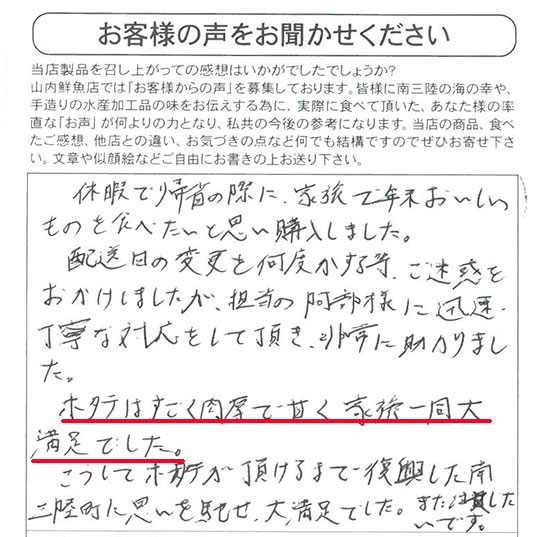 お客様の声をお聞かせください
当店製品を召し上がっての感想はいかがでしたでしょうか?
山内鮮魚店では「お客様からの声」を募集しております。皆様に南三陸の海の幸や、
手造りの水産加工品の味をお伝えする為に、実際に食べて頂いた、あなた様の率
直な「お声」が何よりの力となり、私共の今後の参考になります。当店の商品、食べ
たご感想、他店との違い、お気づきの点など何でも結構ですのでぜひお寄せ下さ
い。文章や似顔絵などご自由にお書きの上お送り下さい。
休暇で帰省の際に、家族で年末おいしい
ものを食べたいと思い購入しました。
配送日の変更を何度かする等、ご迷惑を
おかけしましたが、担当の阿部様に迅速・
丁寧な対応をして頂き、非常に助かりまし
た。
ホタテはすごく肉厚で甘く家族一同大
満足でした。
こうしてホタテが頂けるまで復興した南
三陸町に思いを馳せ、大満足でした。または
いです。